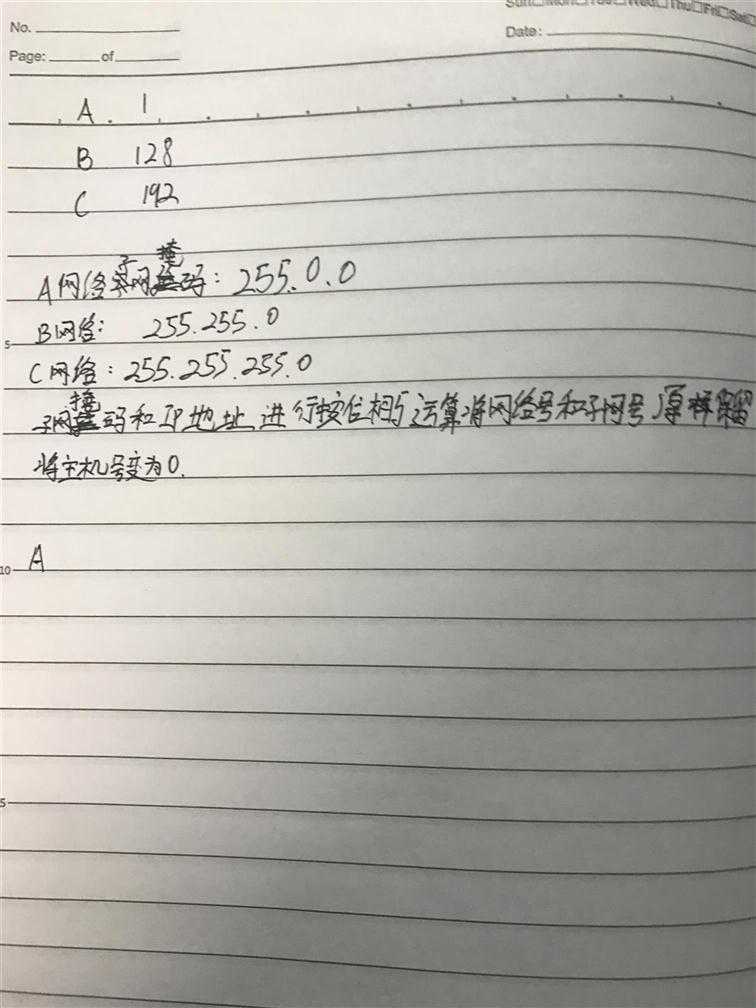 Sun□Mon□Tue□Wed□Thu□Fri□Sat□
No.
Date:
Page: of
A 1
B 128
C 192
A网络子网掩码: 255.0.0
B网络: 255.255.0
C网络: 255.255.255.0
子网掩码和IP地址进行按位相与运算将网络号和子网号原样保留
将主机号变为0.
10 A
5
5